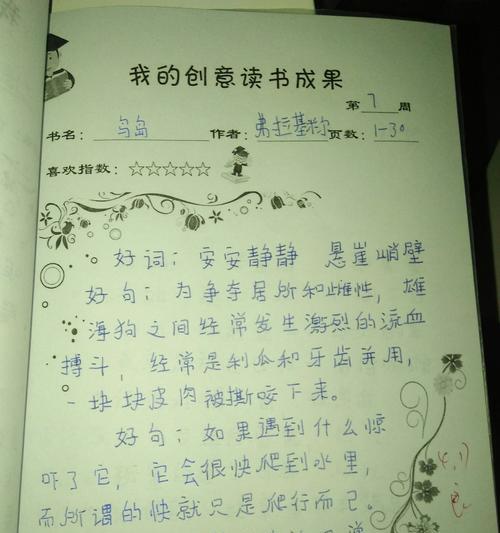 我的创意读书成果
第 7 周
书名: 鸟岛 作者: 弗拉基称 页数: 1-30
喜欢指数: ☆☆☆☆☆
好词: 安安静静 悬崖峭壁
好句: 为争夺居所和雌性, 雄
海狗之间经常发生激烈的流血
搏斗, 经常是利爪和牙齿并用,
一块块皮肉被撕咬下来。
好句: 如果遇到什么惊
吓了它, 它会很快爬到水里,
而所谓的快就只是爬行而已。
4.1